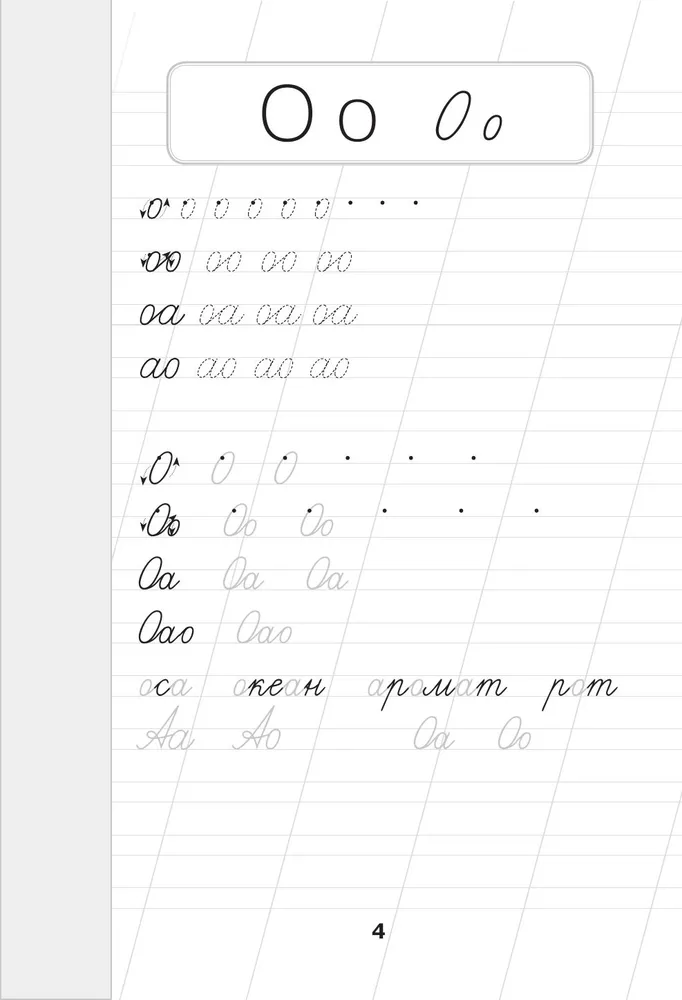 О о О о
о о о о о о
оо оо оо оо
оа оа оа оа
ао ао ао ао
О О О
Оо Оо Оо
Оа Оа Оа
Оао Оао
оса океан аромат рот
Аа Ао Оа Оо
4